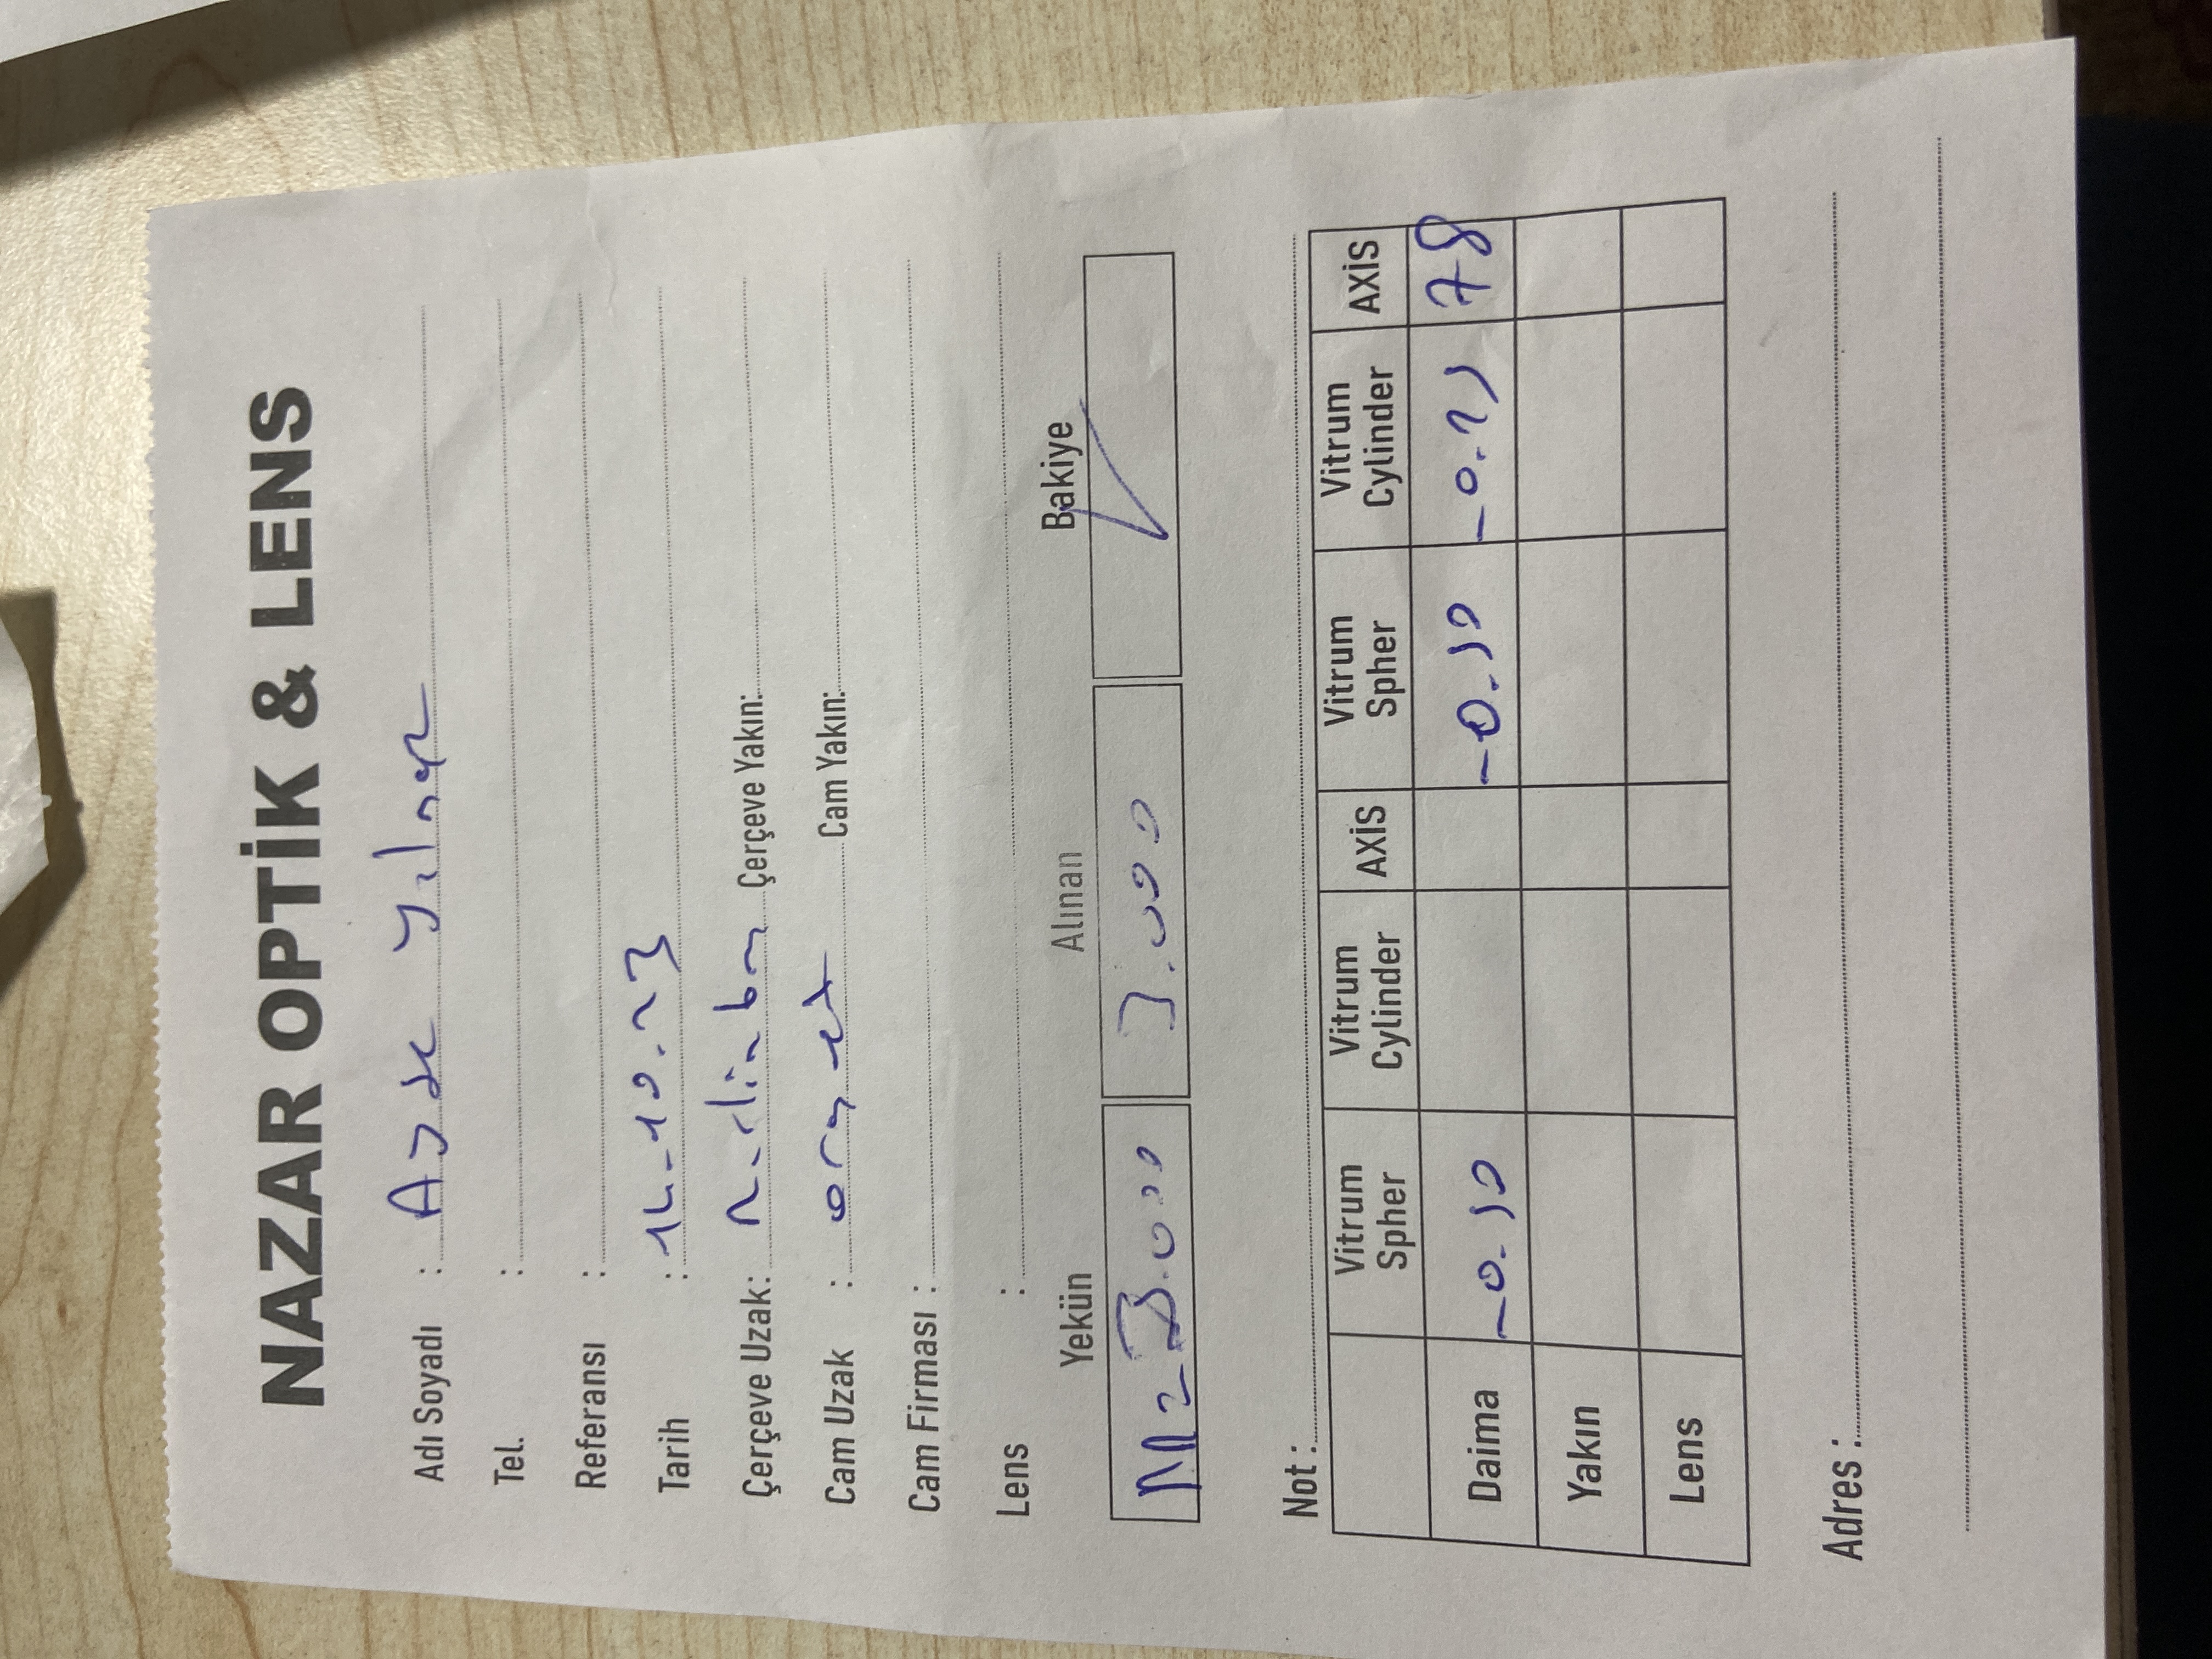 NAZAR OPTİK & LENS
Adı Soyadı : Ayşe Yılmaz
Tel. :
Referansı :
Tarih : 14-10.23
Çerçeve Uzak: Çerçeve Yakın:
Cam Uzak : Cam Yakın:
Cam Firması :
Lens :
Yekün Alınan Bakiye
M= 3.000 3.000
Not :
Vitrum Spher Vitrum Cylinder AXİS Vitrum Spher Vitrum Cylinder AXİS
Daima -0.50 -0.50 -0.25 78
Yakın
Lens
Adres :